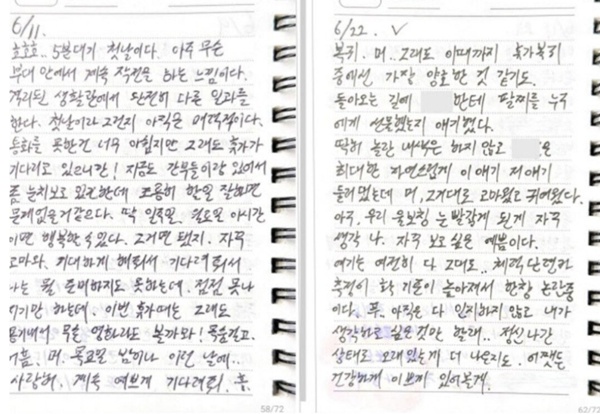 6/11.
호호호. 5분대기 첫날이다. 아주 무슨
부대 안에서 계속 작전을 하는 느낌이다.
격리된 생활관에서 단편히 다른 일과를
한다. 첫날이라 그런지 아직은 어색하다.
통화를 못한건 너무 아쉽지만 그래도 휴가
기다리고 있으니깐! 지금도 간부들이랑 있어서
좀 눈치보고 있긴한데 조용히 할일 잘하면
문제없을거같으다. 딱 일주일. 월요일 이시간
이면 행복할 수 있다. 그거면 됐지. 자꾸
고마워. 기대하게 해줘서 기다려줘서
나는 뭘 준비하지도 못하는데. 점점 못나
지기만 하는데. 이번 휴가때는 그래도
용기내서 무슨 영화라도 볼까와! 목숨걸고.
흐흠. 머. 목요일 밤이나 이런 날에..
사랑해. 계속 예쁘게 기다려줘. 흠.
58/72
6/22. ✓
복귀. 머.. 그래도 이때까지 휴가복귀
중에선 가장 양호한 것 같기도.
돌아오는 길에 한테 팔찌를 누구
에게 선물했는지 얘기했다.
딱히 놀란 내색은 하지 않고 은
최대한 자연스럽게 이 얘기 저 얘기
둘러댔는데 머, 그거대로 고마웠고 귀여웠다.
아무. 우리 울보찡 눈 빨갛게 된게 자꾸
생각 나. 자꾸 보고싶은 예쁨이다.
여기는 여전히 다 그대로.. 체력단련과
측정이 화 기준이 높아져서 한창 논란중
이다. 푸. 아직은 다 잊지않고 내가
생각하고 싶은것만 할래.. 정신나간
상태로 오래있는게 더 나은지도. 어쨌든
건강하게 이쁘게 있어볼게.
62/72